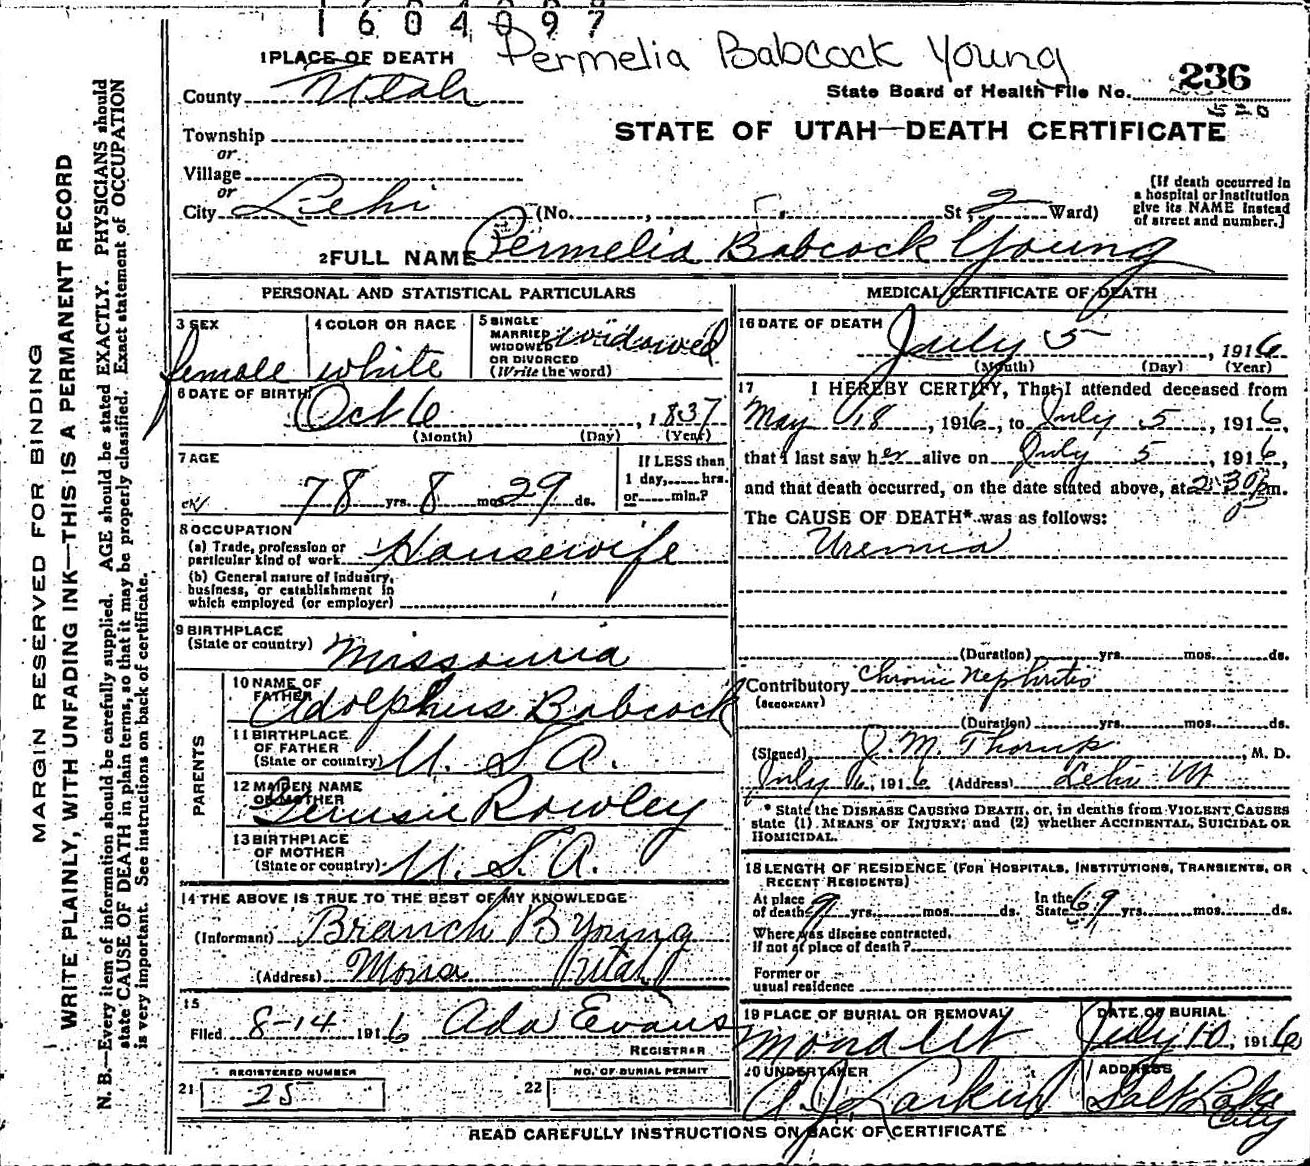 1604097
Permelia Babcock Young
1 PLACE OF DEATH
County Utah
236
State Board of Health File No.
STATE OF UTAH—DEATH CERTIFICATE
Township
or
Village
or
City Lehi (No. , St; 2 Ward)
(If death occurred in
a hospital or institution
give its NAME instead
of street and number.]
2 FULL NAME Permelia Babcock Young
MARGIN RESERVED FOR BINDING
WRITE PLAINLY, WITH UNFADING INK—THIS IS A PERMANENT RECORD
N. B.—Every item of information should be carefully supplied. AGE should be stated EXACTLY. PHYSICIANS should
state CAUSE OF DEATH in plain terms, so that it may be properly classified. Exact statement of OCCUPATION
is very important. See instructions on back of certificate.
PERSONAL AND STATISTICAL PARTICULARS
3 SEX
female
4 COLOR OR RACE
white
5 SINGLE
MARRIED
WIDOWED
OR DIVORCED
(Write the word)
widowed
6 DATE OF BIRTH
Oct 6, 1837
(Month) (Day) (Year)
7 AGE
78 yrs. 8 mos. 29 ds.
If LESS than
1 day, hrs.
or min.?
8 OCCUPATION
(a) Trade, profession or
particular kind of work Housewife
(b) General nature of industry,
business, or establishment in
which employed (or employer)
9 BIRTHPLACE
(State or country) Missouria
PARENTS
10 NAME OF
FATHER
Adolphus Babcock
11 BIRTHPLACE
OF FATHER
(State or country) U. S. A.
12 MAIDEN NAME
OF MOTHER
Rowley
13 BIRTHPLACE
OF MOTHER
(State or country) U. S. A.
14 THE ABOVE IS TRUE TO THE BEST OF MY KNOWLEDGE
(Informant) Branch B Young
(Address) Mona Utah
15
Filed 8-14 1916 Ada Evans
REGISTRAR
REGISTERED NUMBER
21 25
NO. OF BURIAL PERMIT
22
MEDICAL CERTIFICATE OF DEATH
16 DATE OF DEATH
July 5, 1916
(Month) (Day) (Year)
17 I HEREBY CERTIFY, That I attended deceased from
May 18, 1916, to July 5, 1916,
that I last saw her alive on July 5, 1916,
and that death occurred, on the date stated above, at 2:30 pm.
The CAUSE OF DEATH* was as follows:
Uremia
(Duration) yrs. mos. ds.
Contributory Chronic Nephritis
(SECONDARY)
(Duration) yrs. mos. ds.
(Signed) J. M. Thorup, M. D.
July 6, 1916 (Address) Lehi Ut
* State the DISEASE CAUSING DEATH, or, in deaths from VIOLENT CAUSES
state (1) MEANS OF INJURY; and (2) whether ACCIDENTAL, SUICIDAL OR
HOMICIDAL.
18 LENGTH OF RESIDENCE (FOR HOSPITALS, INSTITUTIONS, TRANSIENTS, OR
RECENT RESIDENTS)
At place
of death 9 yrs. mos. ds.
In the
State 69 yrs. mos. ds.
Where was disease contracted,
if not at place of death?
Former or
usual residence
19 PLACE OF BURIAL OR REMOVAL
Mona Ut
DATE OF BURIAL
July 10, 1916
20 UNDERTAKER
A. J. Larkin
ADDRESS
Salt Lake
City
READ CAREFULLY INSTRUCTIONS ON BACK OF CERTIFICATE